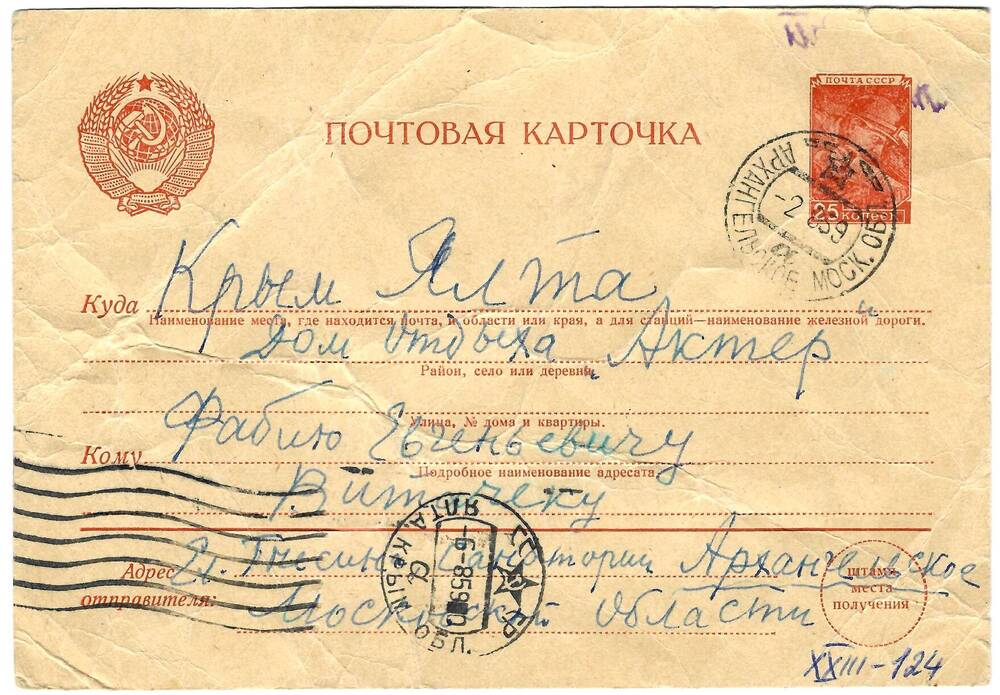 ПОЧТОВАЯ КАРТОЧКА
ПОЧТА СССР
25 КОПЕЕК
АРХАНГЕЛЬСКОЕ МОСК. ОБЛ.
-2 859
Куда Крым Ялта
Наименование места, где находится почта, и области или края, а для станций—наименование железной дороги.
Дом Отдыха „Актер“
Район, село или деревня
Улица, № дома и квартиры.
Кому Фабию Евгеньевичу
Подробное наименование адресата
Витачеку
ЯЛТА, КРЫМ. О ОБЛ.
-6-859
СССР
Адрес отправителя:
Гнесин Санаторий Архангельское
Московской области
штамп
места
получения
XXIII-124